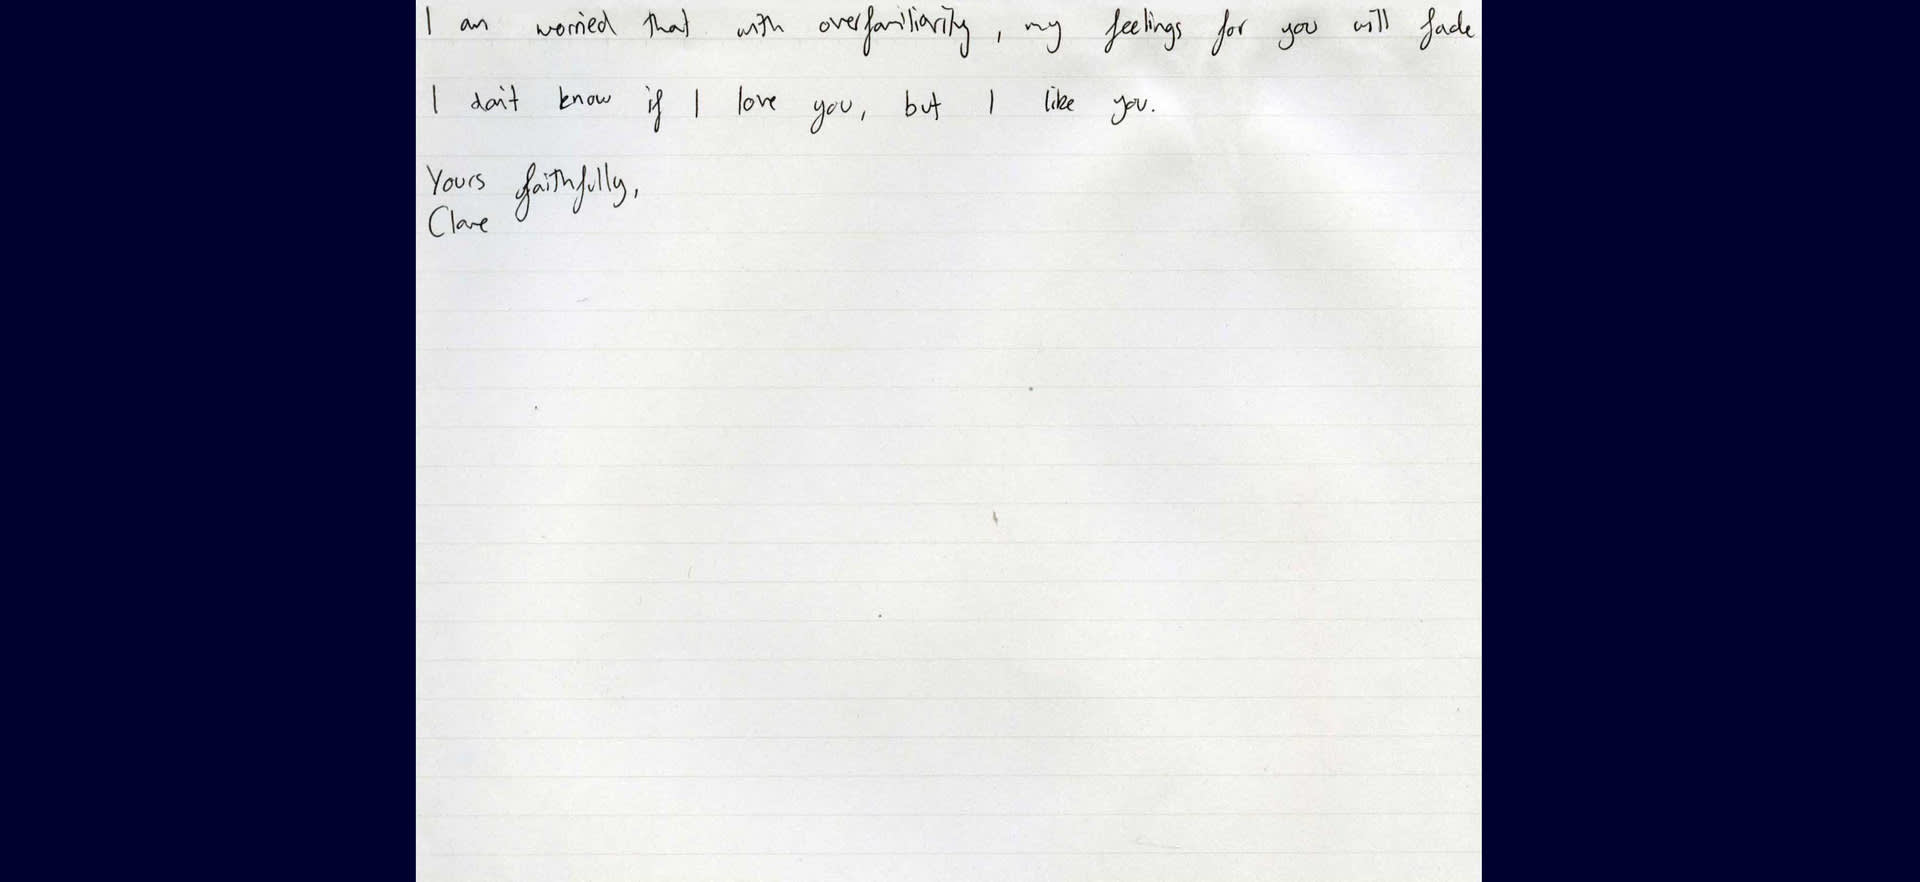 I am worried that with overfamiliarity, my feelings for you will fade
I don't know if I love you, but I like you.
Yours faithfully,
Clare